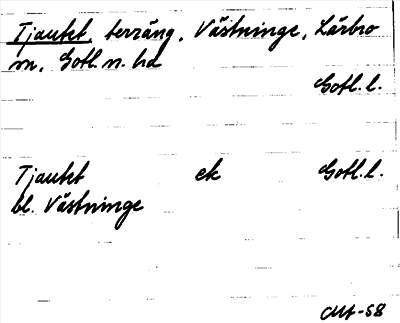 Tjautet, terräng, Västninge, Lärbro
sn, Gotl. n. hd
Gotl. l.
Tjautet ek Gotl. l.
bl. Västninge
-58